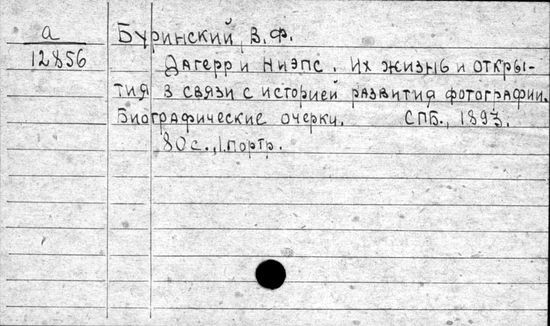 а
12856
Буринский, В.Ф.
Дагерр и Ниэпс. Их жизнь и откры-
тия в связи с историей развития фотографии.
Биографические очерки. СПБ., 1893.
80 с., 1 портр.